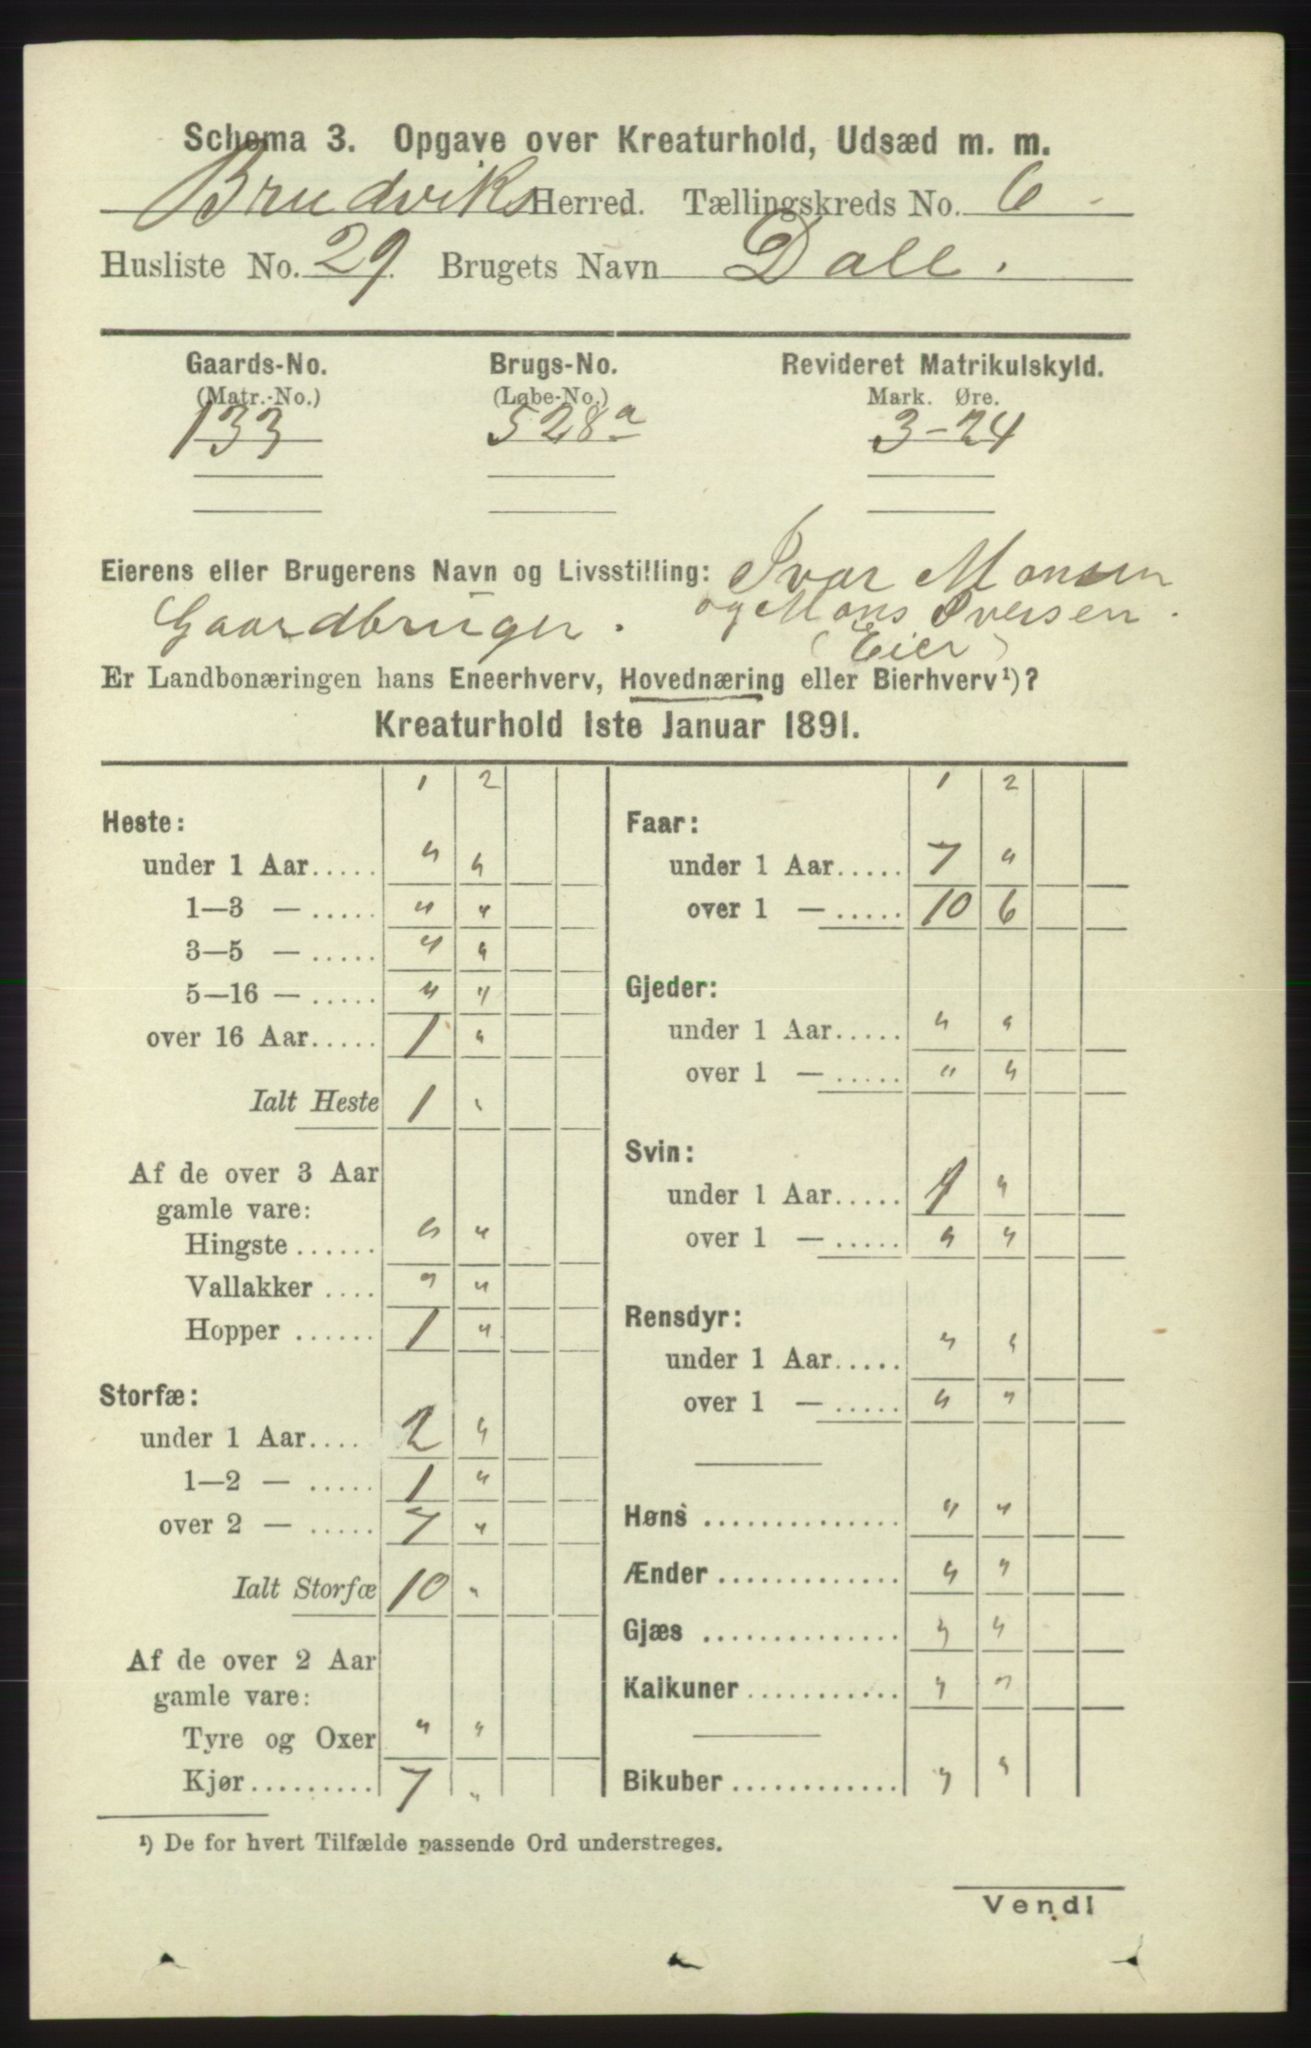 Schema 3. Opgave over Kreaturhold, Udsæd m. m.
Brudviks Herred. Tællingskreds No. 6
Husliste No. 29. Brugets Navn Dale.
Gaards-No. Brugs-No. Revideret Matrikulskyld.
(Matr.-No.) (Løbe-No.) Mark. Øre.
133 528 a 3-24
Eierens eller Brugerens Navn og Livsstilling: Ivar Monsen
Gaardbruger. og Mons Iversen.
(Eier)
Er Landbonæringen hans Eneerhverv, Hovednæring eller Bierhverv¹)?
Kreaturhold 1ste Januar 1891.
1 2
Heste:
under 1 Aar..... " "
1—3 — ..... " "
3—5 — ..... " "
5—16 — ..... " "
over 16 Aar..... 1 "
Ialt Heste 1 "
Af de over 3 Aar
gamle vare:
Hingste ...... " "
Vallakker .... " "
Hopper ...... 1 "
Storfæ:
under 1 Aar.... 2 "
1—2 — ..... 1 "
over 2 — ..... 7 "
Ialt Storfæ 10 "
Af de over 2 Aar
gamle vare:
Tyre og Oxer " "
Kjør......... 7 "
1 2
Faar:
under 1 Aar..... 7 "
over 1 — ..... 10 6
Gjeder:
under 1 Aar..... " "
over 1 — ..... " "
Svin:
under 1 Aar..... 1 "
over 1 — ..... " "
Rensdyr:
under 1 Aar..... " "
over 1 — ..... " "
Høns .............. " "
Ænder ............. " "
Gjæs .............. " "
Kalkuner........... " "
Bikuber ............ " "
¹) De for hvert Tilfælde passende Ord understreges.
Vend!